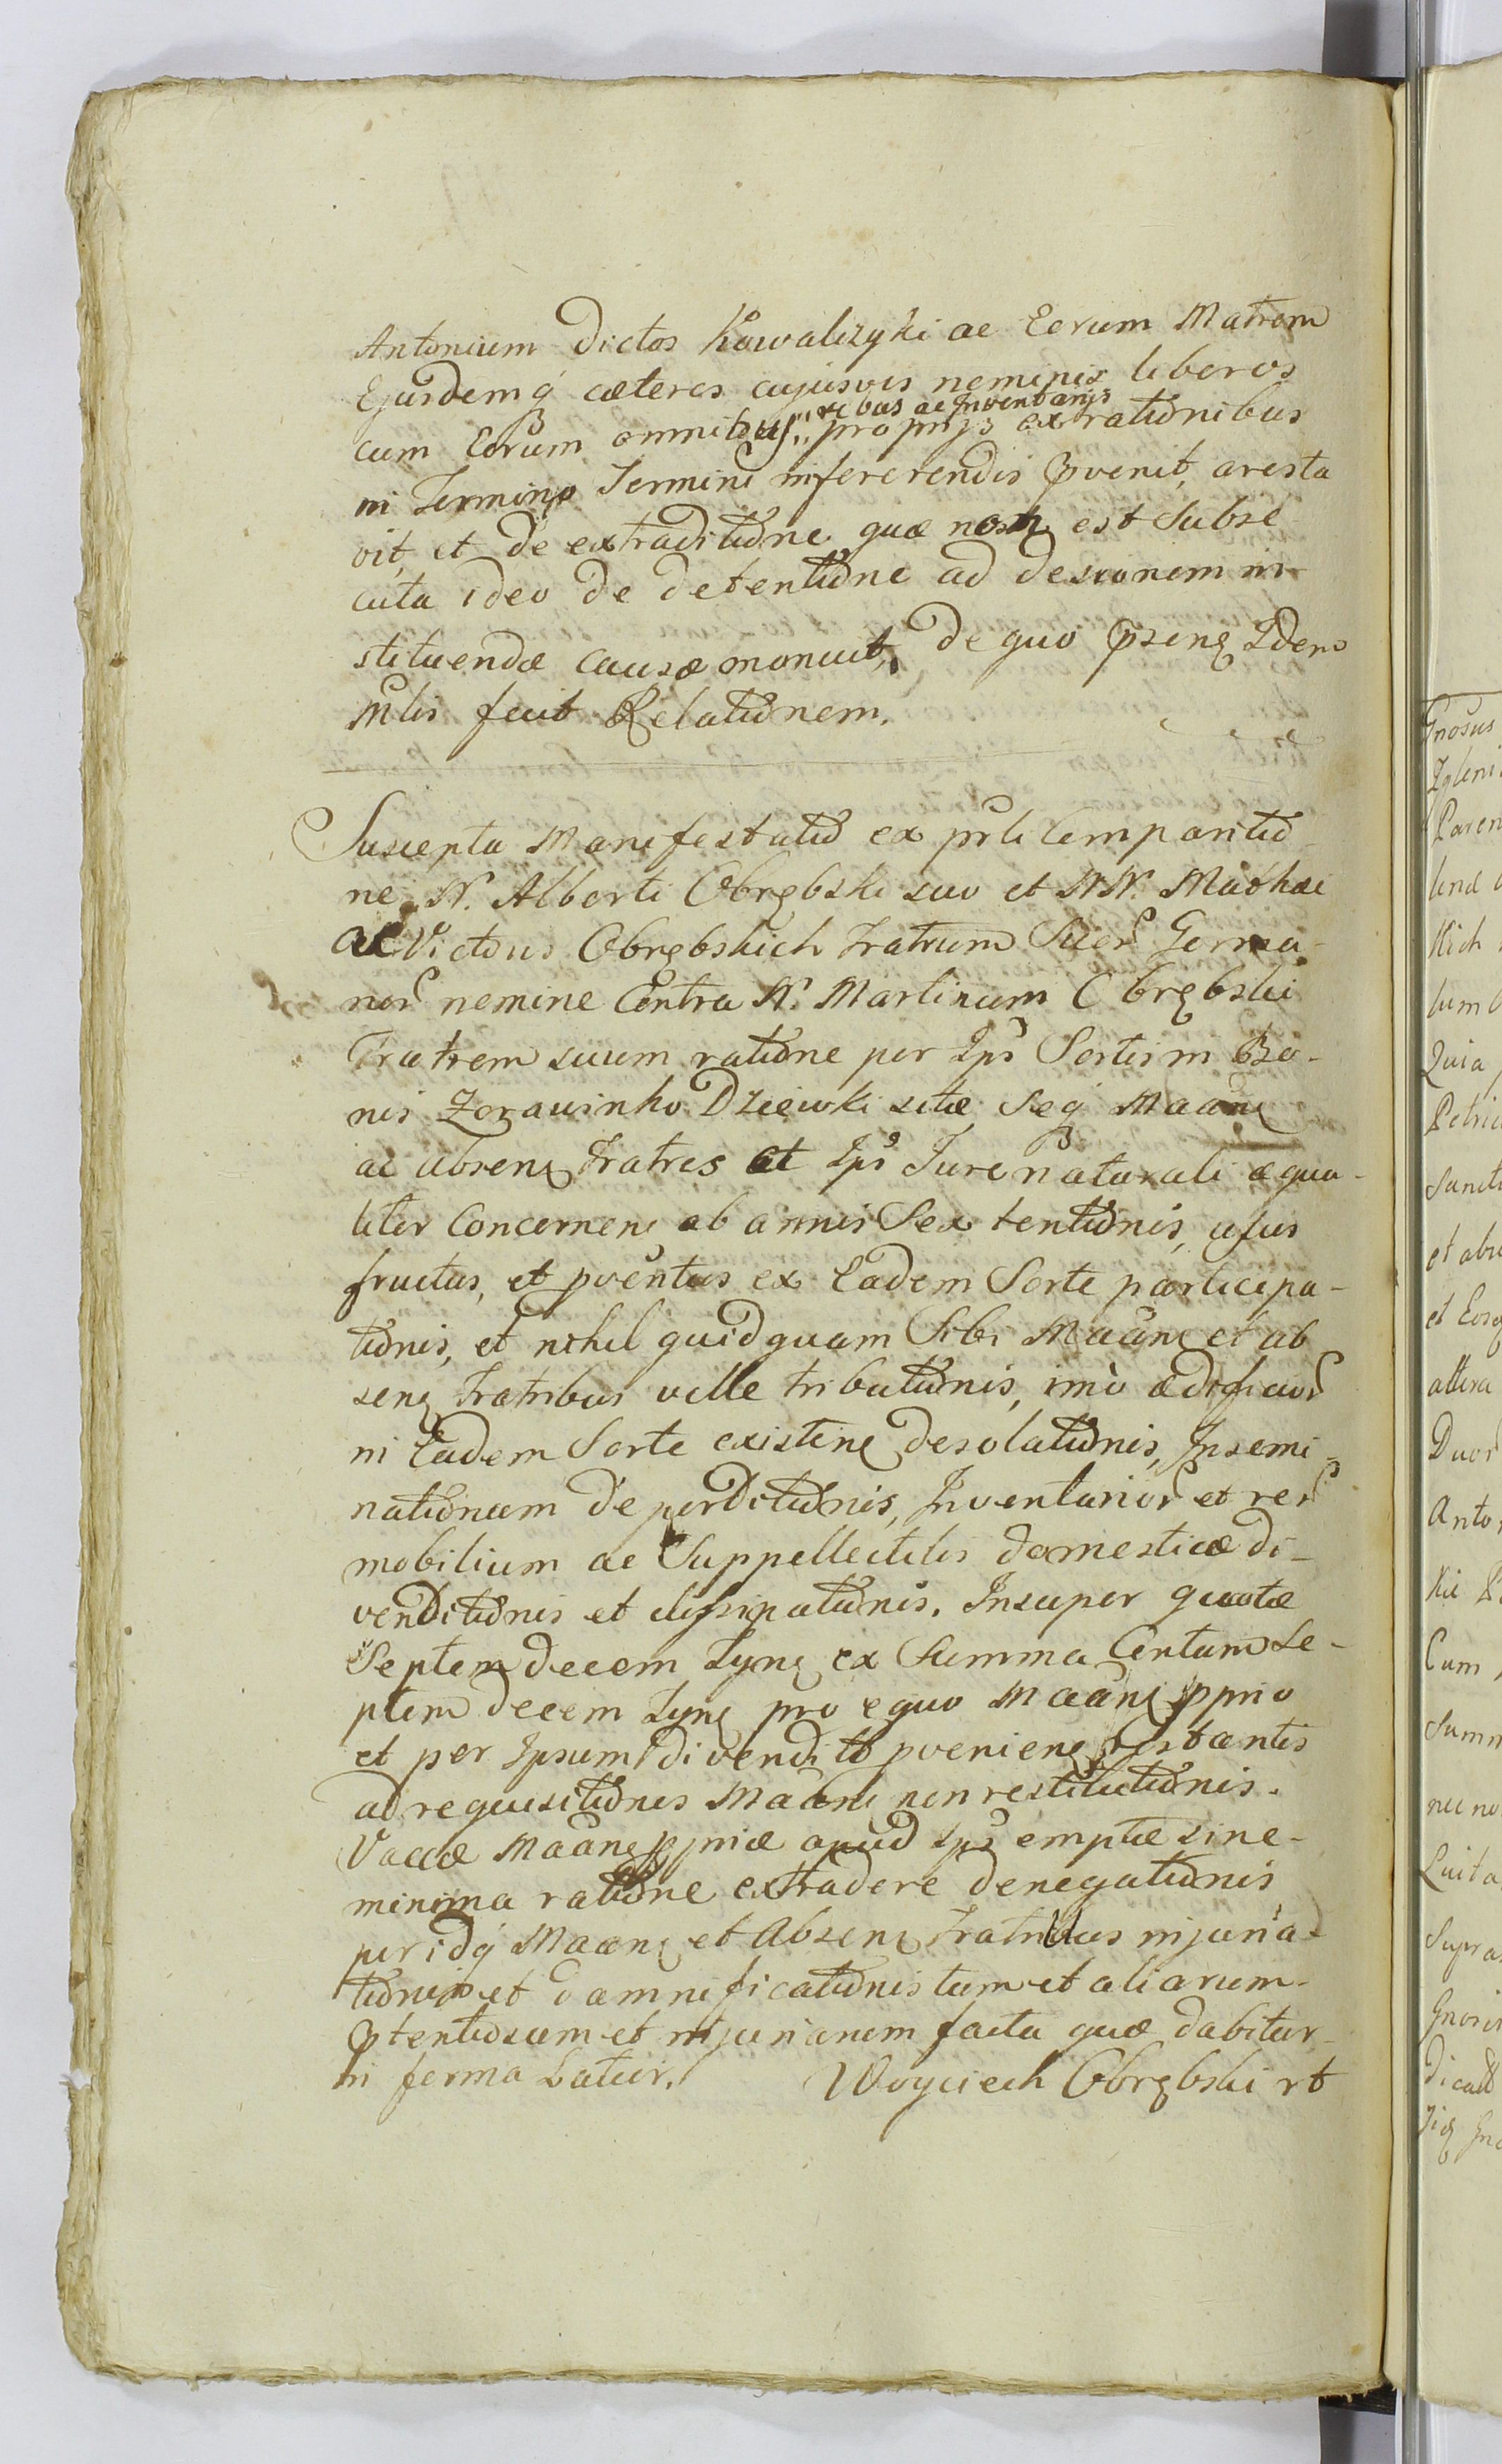 Antonium dictos Kowalczyki ac Eorum Matrem
Ejusdemq́ cæteros cujusvis neminis liberos
rebus ac Inventarijs
cum Eorum omnibus proprijs ex rationibus
in Termino Termini inferendis pvenit, aresta
vit, et de extraditione quæ non est Subse
cuta ideo de detentione ad descionem in-
stituendæ causæ monuit, de quo psens Idem
Mlis fecit Relationem.
Suscepta Manifestatio ex prli Compantio
ne N. Alberti Obrębski suo et NN. Mathæi
ac Victoris Obrębskich Fratrum Suor Germa-
nor nemine Contra N. Martinum Obrębski
Fratrem suum ratione per Ips Sortis in Bo-
nis Zorawinko Dziewki sitæ Seq Maan
ac absen Fratres et Ips Jure naturali æqua-
liter Concernen ab annis Sex tentionis, usus
fructus, et pventus ex Eadem Sorte participa-
tionis, et nihil quidquam Sibi Maan et ab
sen Fratribus velle tributionis, imò ædificior
in Eadem Sorte existen desolationis, Insemi-
nationum deperditionis, Inventarior et rer
mobilium ac Suppellectilis domesticæ di-
venditionis et dissipationis. Insuper quotæ
Septem decem Tyn ex Summa Centum Se-
ptem decem Tyn pro equo Maan pprio
et per Ipsum divendito pvenien restantis
ad requisitiones Maan non restitutionis.
Vaccæ Maan ppriæ apud Ips emptæ sine-
minima ratione extradere denegationis
per idq́ Maan et Absen Fratribus injuria-
tionis et damnificationis tum et aliarum
ptentionum et injuriarum facta quæ dabitur
in forma Latiori. Woyciech Obrębski rt
Gnosus
Paren
Kich
Quia
Petri
et abs
altera
Duor
Anto
Cum
Summ
nec no
Supra